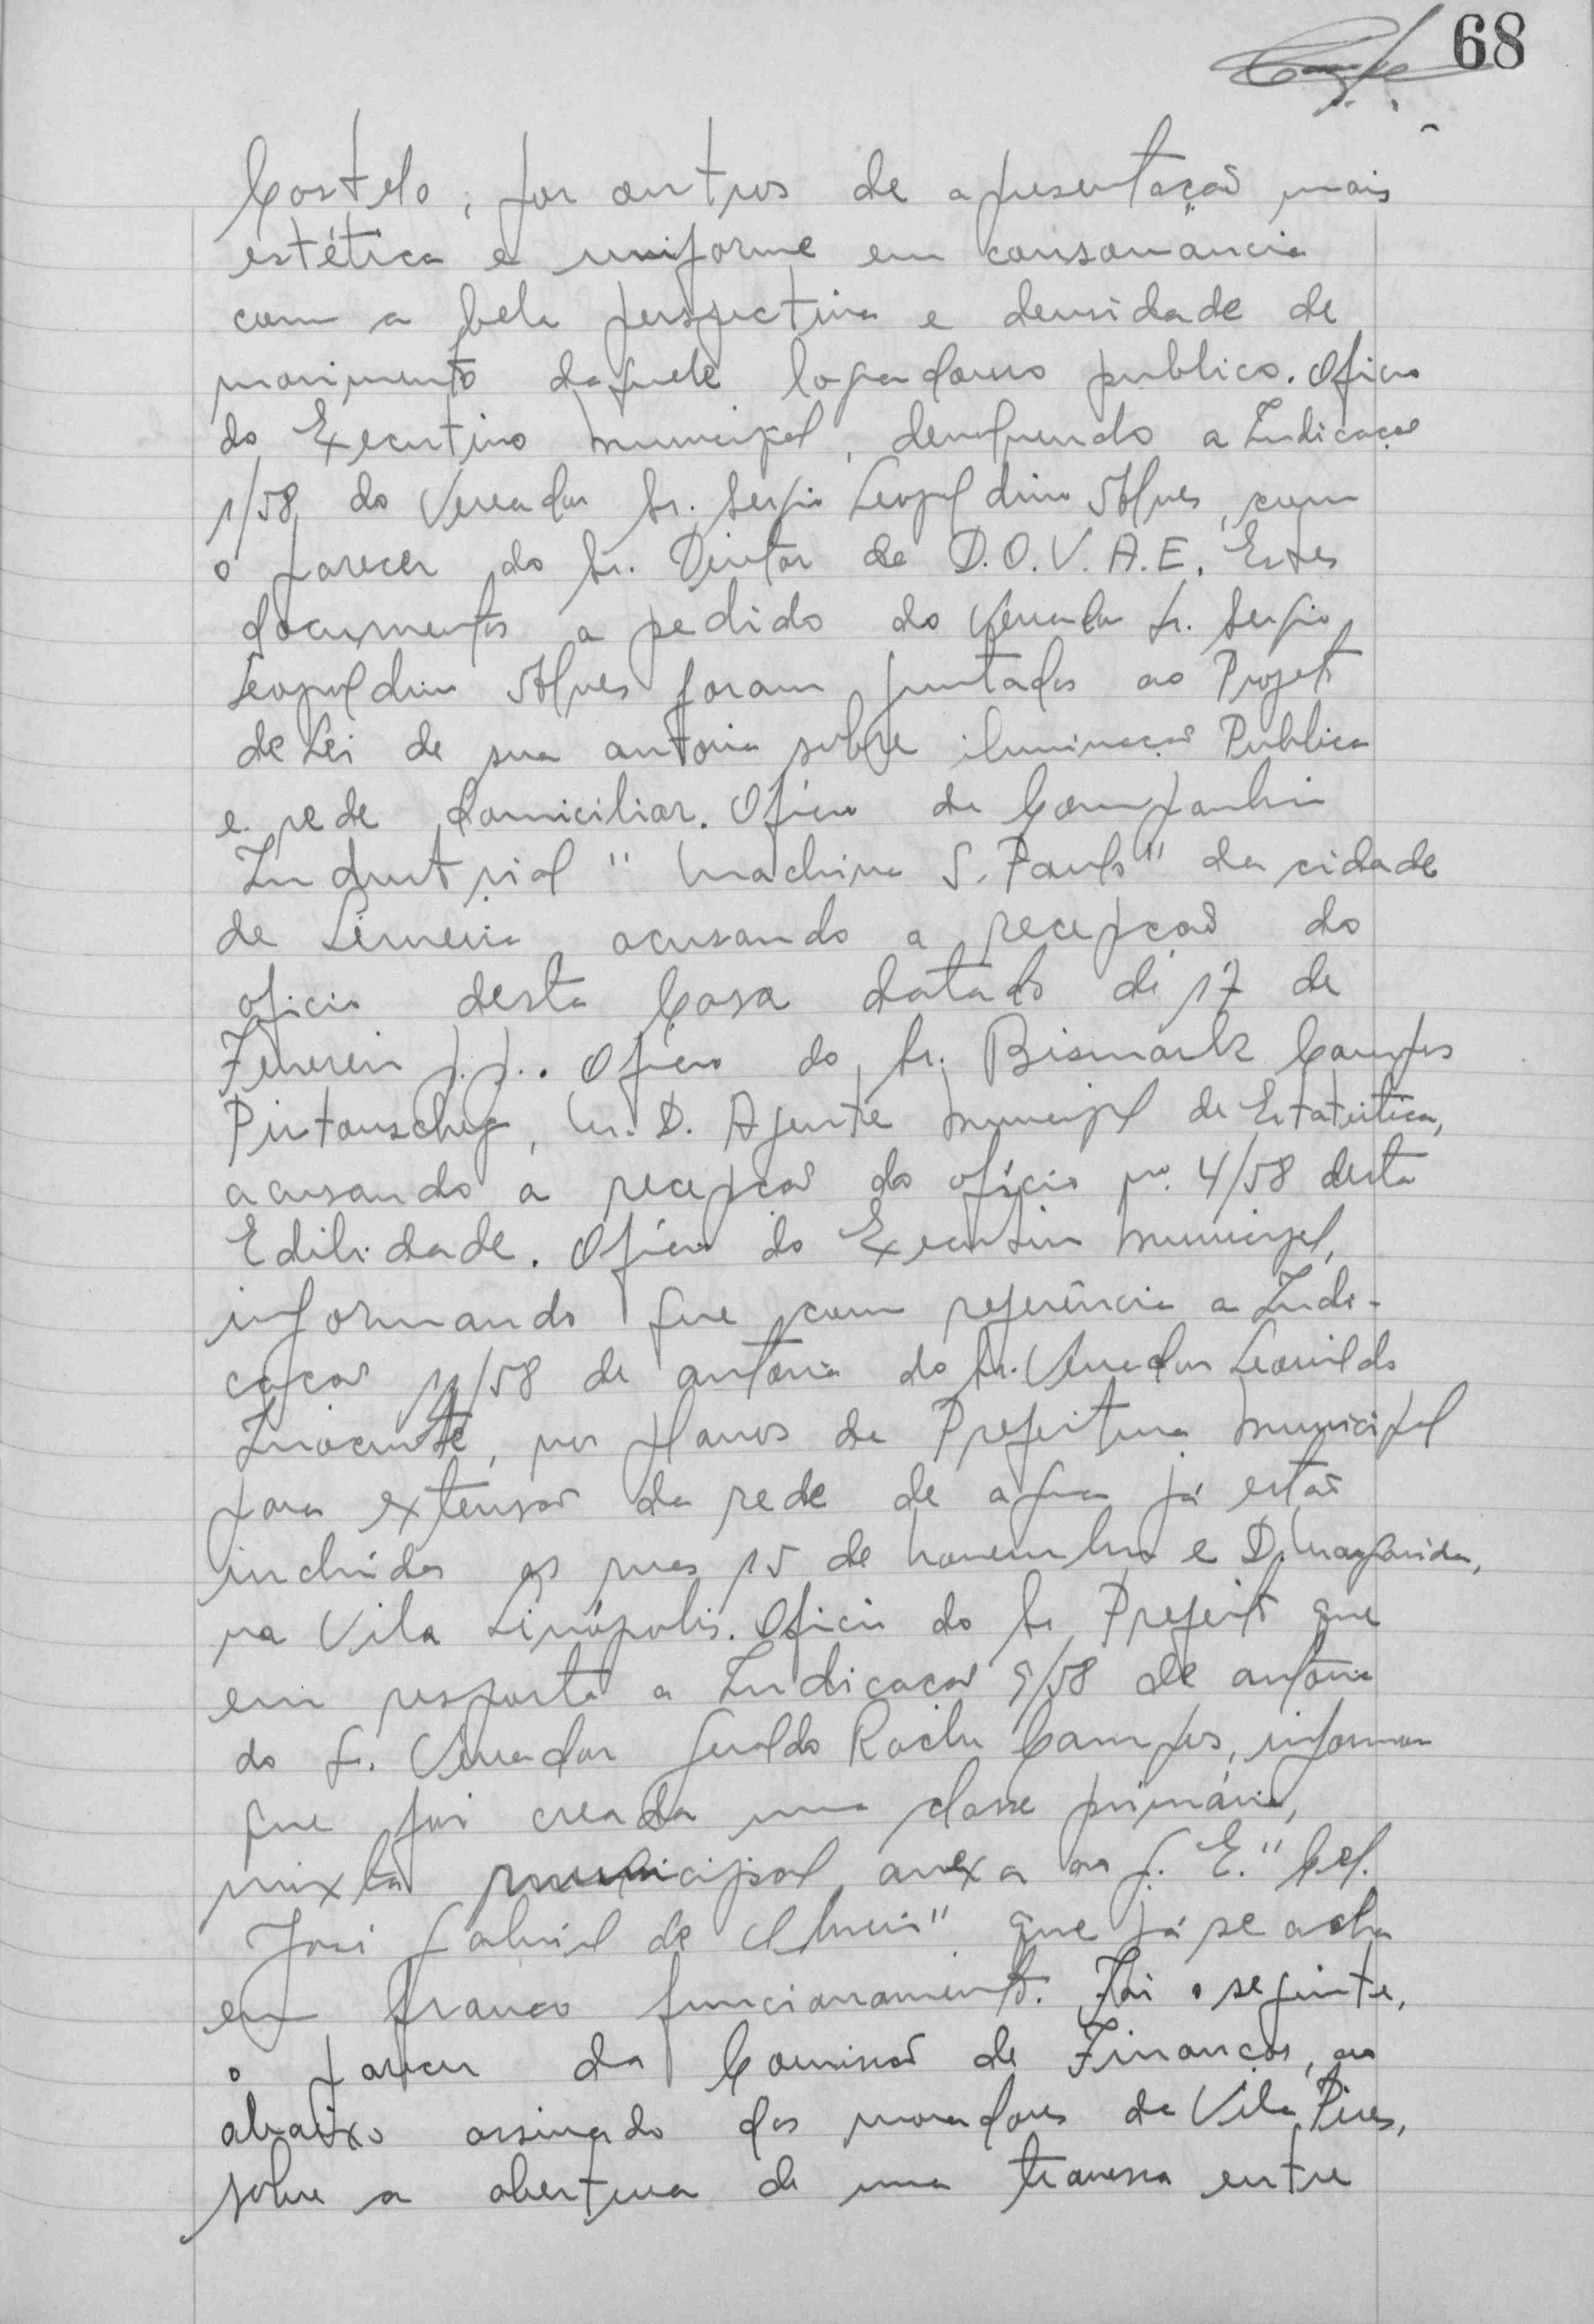 68
Castelo, por outros de apresentação mais
estética e uniforme em consonancia
com a bela perspectiva e densidade de
movimento daquele logradouro publico. Oficio
do Executivo Municipal, devolvendo a Indicação
1/58 do Vereador Sr. Sergio Leopoldino Alves, com
o parecer do Sr. Diretor de D.O.V.A.E. Estes
documentos a pedido do Vereador Sr. Sergio
Leopoldino Alves foram juntados ao Projeto
de Lei de sua autoria sobre iluminação Publica
e rede domiciliar. Oficio da Companhia
Industrial "Machina S. Paulo" da cidade
de Limeira acusando a recepção do
oficio desta Casa datado de 17 de
Fevereiro p.p.. Oficio do Sr. Bismark Campos
M.D. Agente Municipal de Estatistica,
acusando a recepção do ofício nº. 4/58 desta
Edilidade. Oficio do Executivo Municipal,
informando que com referência a Indi-
cação /58 de autoria do Sr. Vereador Leonildo
Inocente, nos planos da Prefeitura Municipal
para extensão da rede de agua já estão
incluidas as ruas 15 de novembro e D. Margarida,
na Vila Linópolis. Oficio do Sr Prefeito que
em resposta a Indicação 9/58 de autoria
do Sr. Vereador Geraldo Rocha Campos, informa
que foi creada uma classe primária,
mixta municipal anexa ao G. E. "Cel.
José Gabriel de Oliveira" que já se acha
em franco funcionamento. Foi o seguinte,
o parecer da Comissão de Finanças, ao
abaixo assinado dos moradores da Vila Pires,
sobre a abertura de uma travessa entre